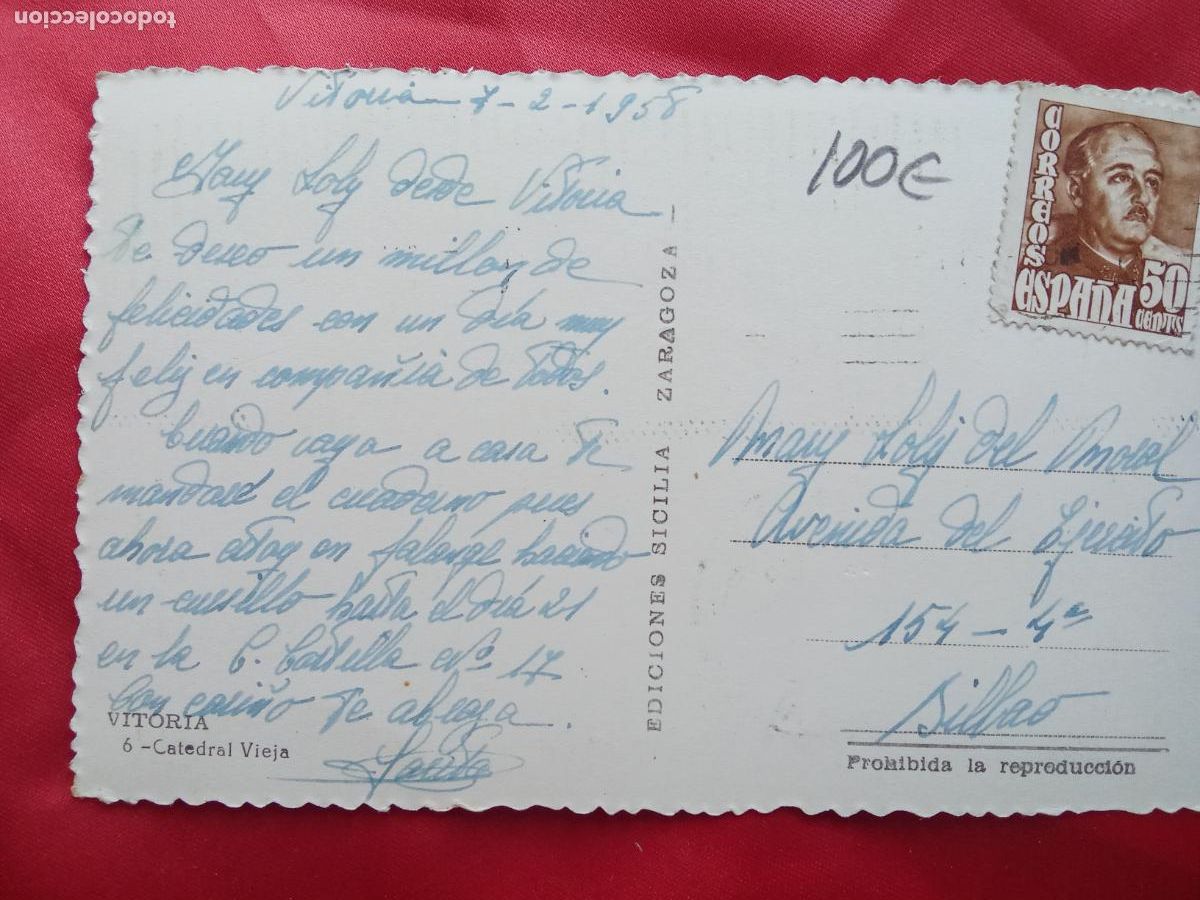 todocoleccion
Vitoria 7-2-1958
Mary Loly desde Vitoria
Te deseo un millon de
felicidades con un día muy
feliz en compañia de todos.
Cuando vaya a casa te
mandaré el cuaderno pues
ahora estoy en falange haciendo
un cursillo hasta el día 21
en la C. Castilla Nº 17
Con cariño te abraza.
VITORIA
6 -Catedral Vieja
EDICIONES SICILIA ZARAGOZA -
100€
CORREOS
ESPAÑA 50
CENTS
Mary Loly del Moral
Avenida del Ejército
154 - 4º
Bilbao
Prohibida la reproducción